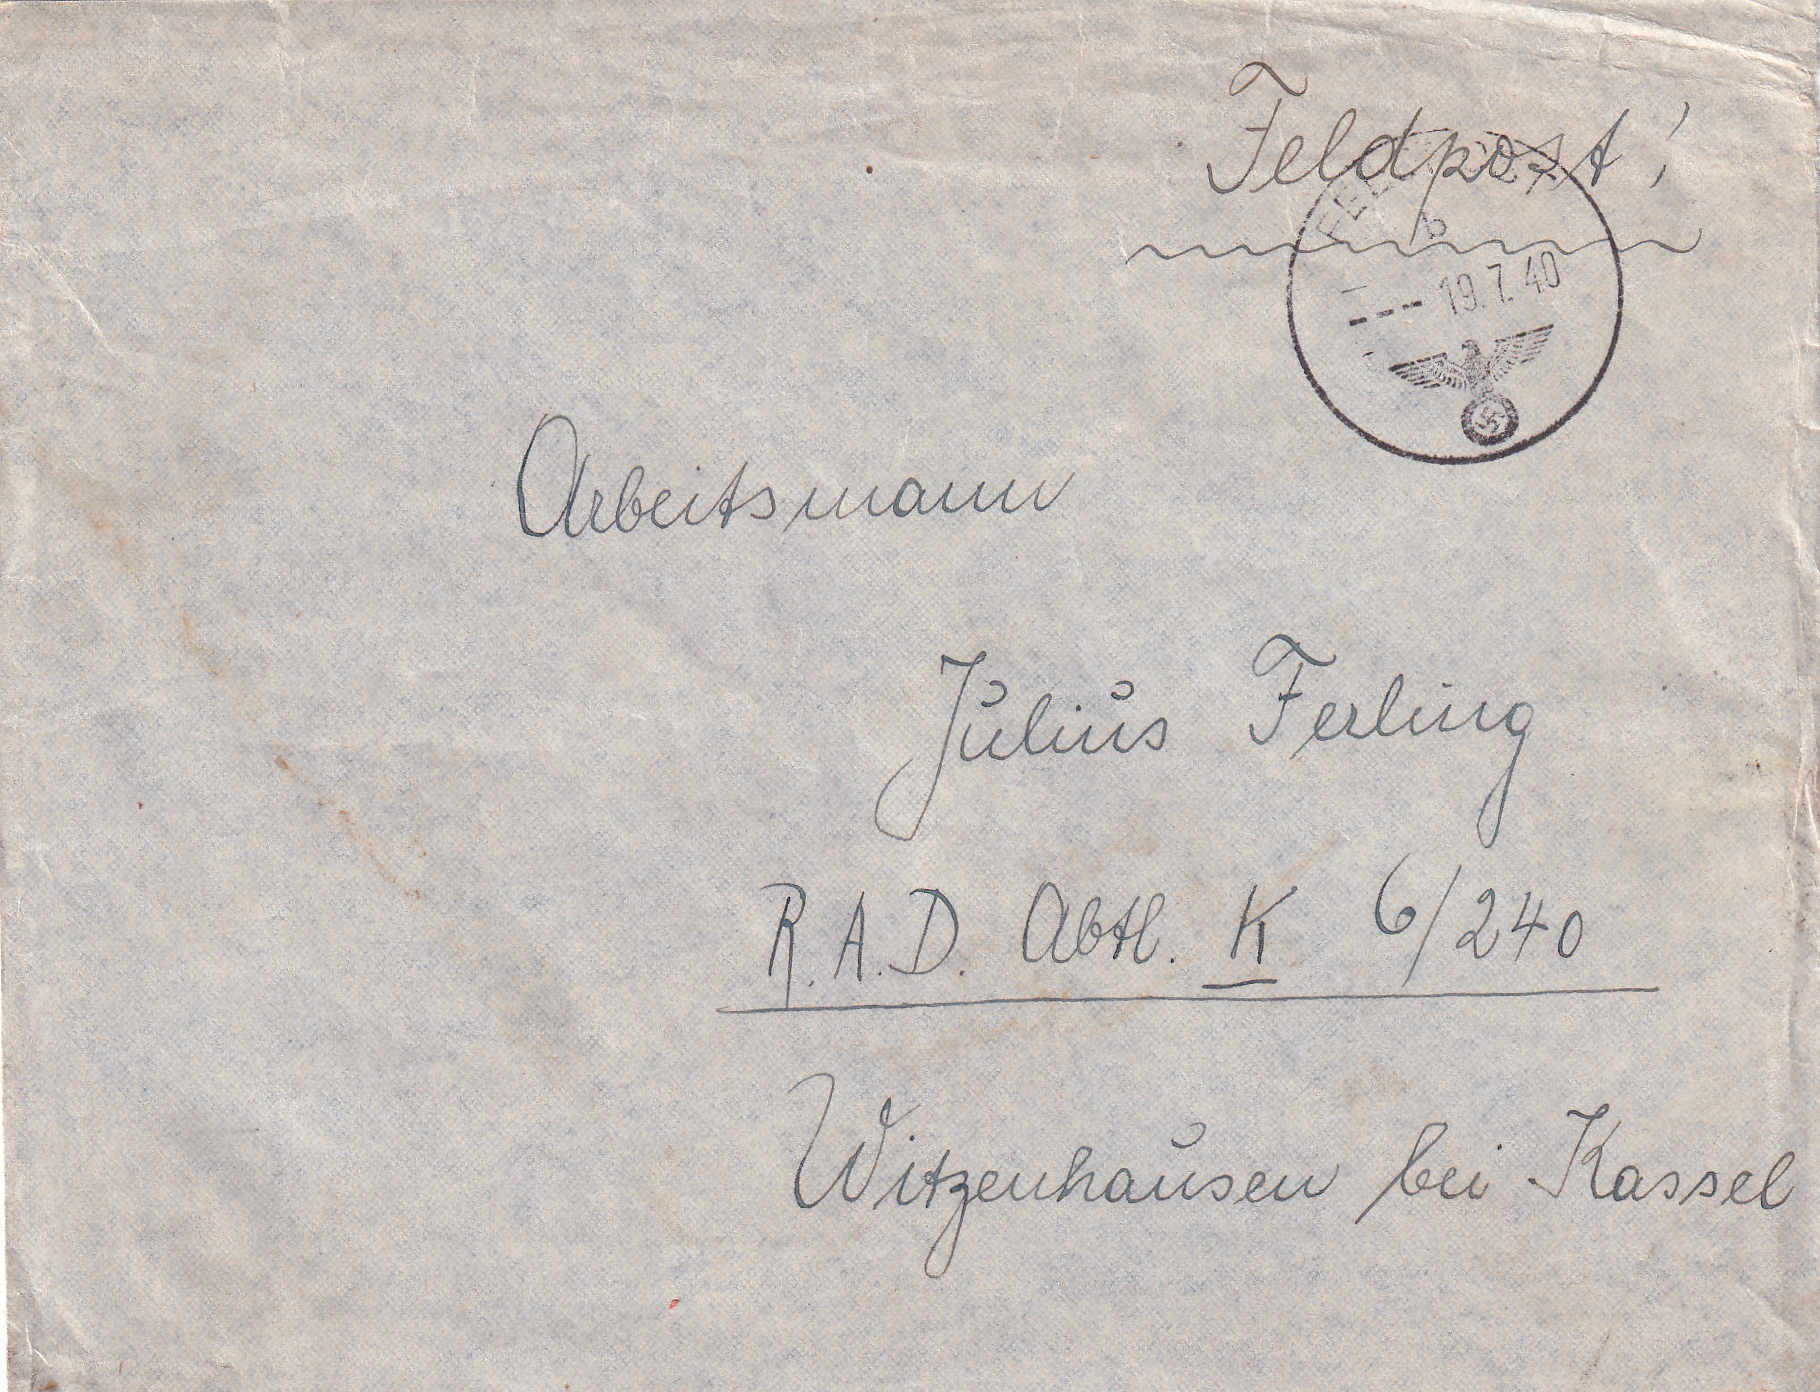 Feldpost!
FELDPOST
b
--- 19.7.40
Arbeitsmann
Julius Ferling
R.A.D. Abtl. K 6/240
Witzenhausen bei Kassel